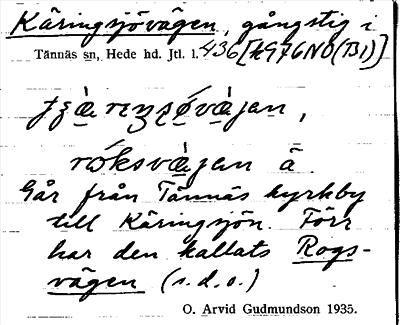 Käringsjövägen, gångstig i
Tännäs sn, Hede hd. Jtl. l. 436 [H976NO(B1)]
röksvä̀jan ä
Går från Tännäs kyrkby
till Käringsjön. Förr
har den kallats Rogs-
vägen (s.d.o.)
O. Arvid Gudmundson 1935.